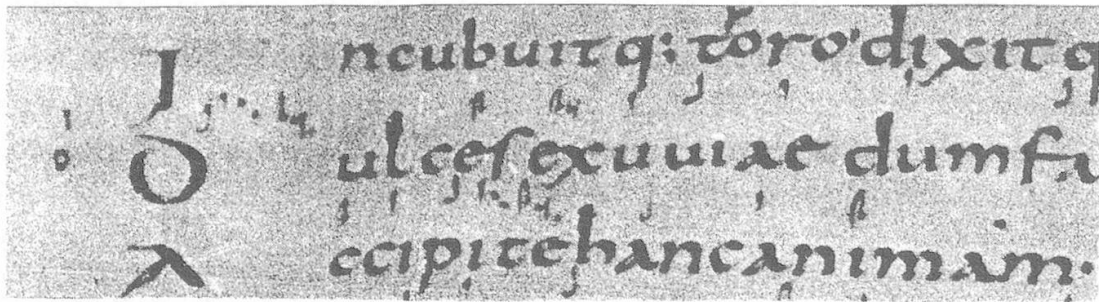 Incubuitq; toro dixitq
Dulces exuuiae dum fa
Accipite hanc animam·